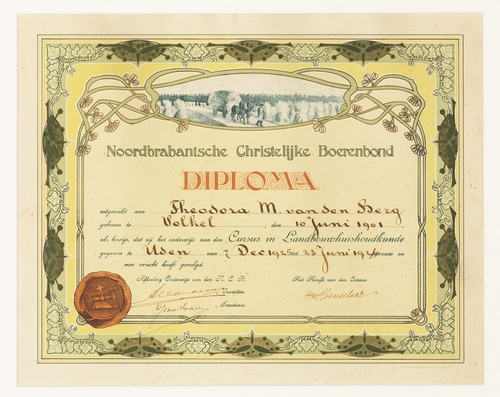 Noordbrabantsche Christelijke Boerenbond
DIPLOMA
uitgereikt aan Theodora M. van den Berg
geboren te Volkel, den 10 Juni 1901
als bewijs, dat zij het onderwijs aan den Cursus in Landbouwhuishoudkunde
gegeven te Uden van 7 Dec 1925 tot 23 Juni
met vrucht heeft gevolgd.
Afdeeling Onderwijs van den N. C. B. Het Hoofd van den Cursus,
Voorzitter
Secretaris